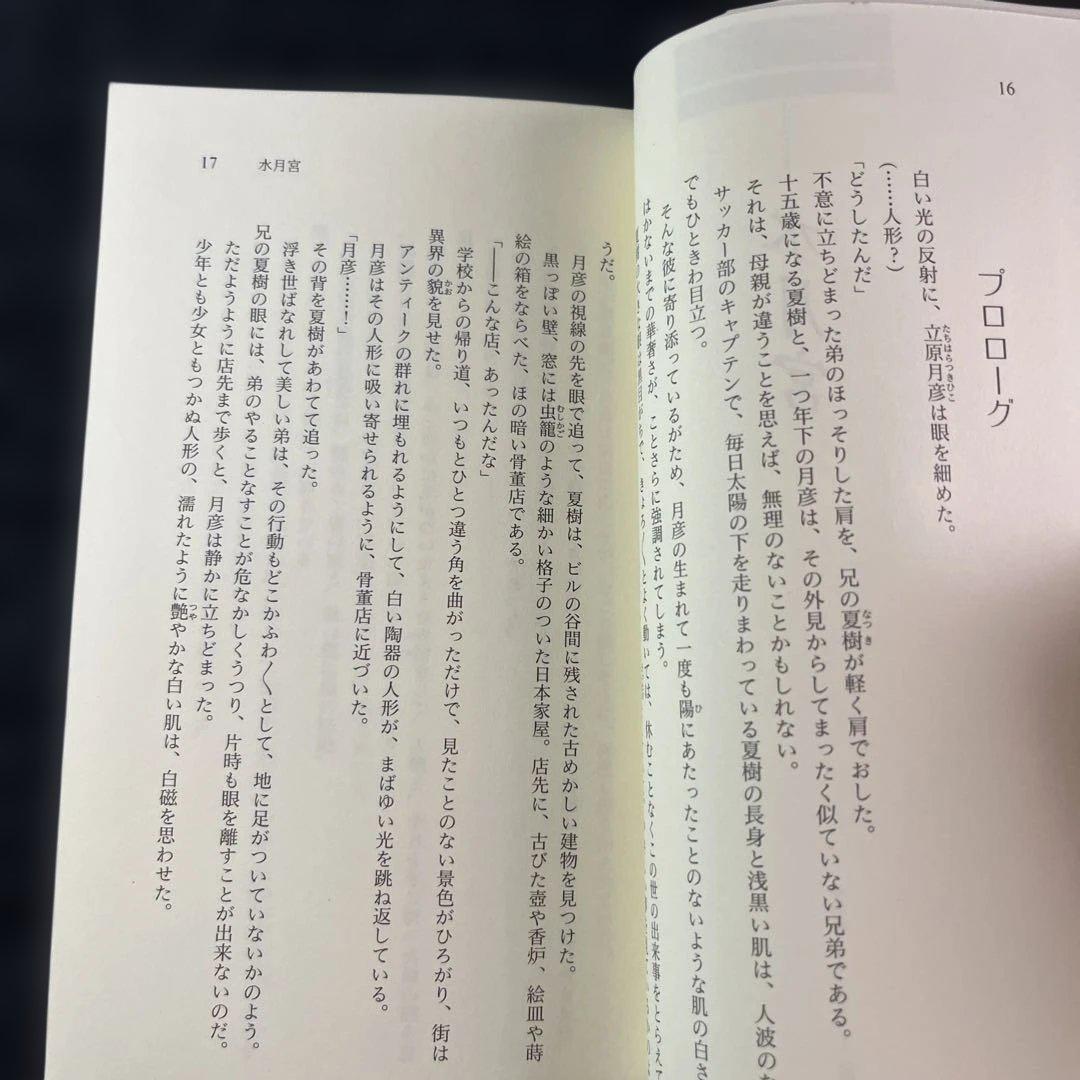 16
プロローグ
白い光の反射に、立原月彦は眼を細めた。
(……人形?)
「どうしたんだ」
不意に立ちどまった弟のほっそりした肩を、兄の夏樹が軽く肩でおした。
十五歳になる夏樹と、一つ年下の月彦は、その外見からしてまったく似ていない兄弟である。
それは、母親が違うことを思えば、無理のないことかもしれない。
サッカー部のキャプテンで、毎日太陽の下を走りまわっている夏樹の長身と浅黒い肌は、人波の
でもひときわ目立つ。
そんな彼に寄り添っているがため、月彦の生まれて一度も陽にあたったことのないような肌の白さ
はかないまでの華奢さが、ことさらに強調されてしまう。
よく動いては、休むことなくこの世の出来事をとらえて
17 水月宮
うだ。
月彦の視線の先を眼で追って、夏樹は、ビルの谷間に残された古めかしい建物を見つけた。
黒っぽい壁、窓には虫籠のような細かい格子のついた日本家屋。店先に、古びた壺や香炉、絵皿や蒔
絵の箱をならべた、ほの暗い骨董店である。
「――こんな店、あったんだな」
学校からの帰り道、いつもとひとつ違う角を曲がっただけで、見たことのない景色がひろがり、街は
異界の貌を見せた。
アンティークの群れに埋もれるようにして、白い陶器の人形が、まばゆい光を跳ね返している。
月彦はその人形に吸い寄せられるように、骨董店に近づいた。
「月彦……!」
その背を夏樹があわてて追った。
浮き世ばなれして美しい弟は、その行動もどこかふわ〱として、地に足がついていないかのよう。
兄の夏樹の眼には、弟のやることなすことが危なかしくうつり、片時も眼を離すことが出来ないのだ。
ただようように店先まで歩くと、月彦は静かに立ちどまった。
少年とも少女ともつかぬ人形の、濡れたように艶やかな白い肌は、白磁を思わせた。